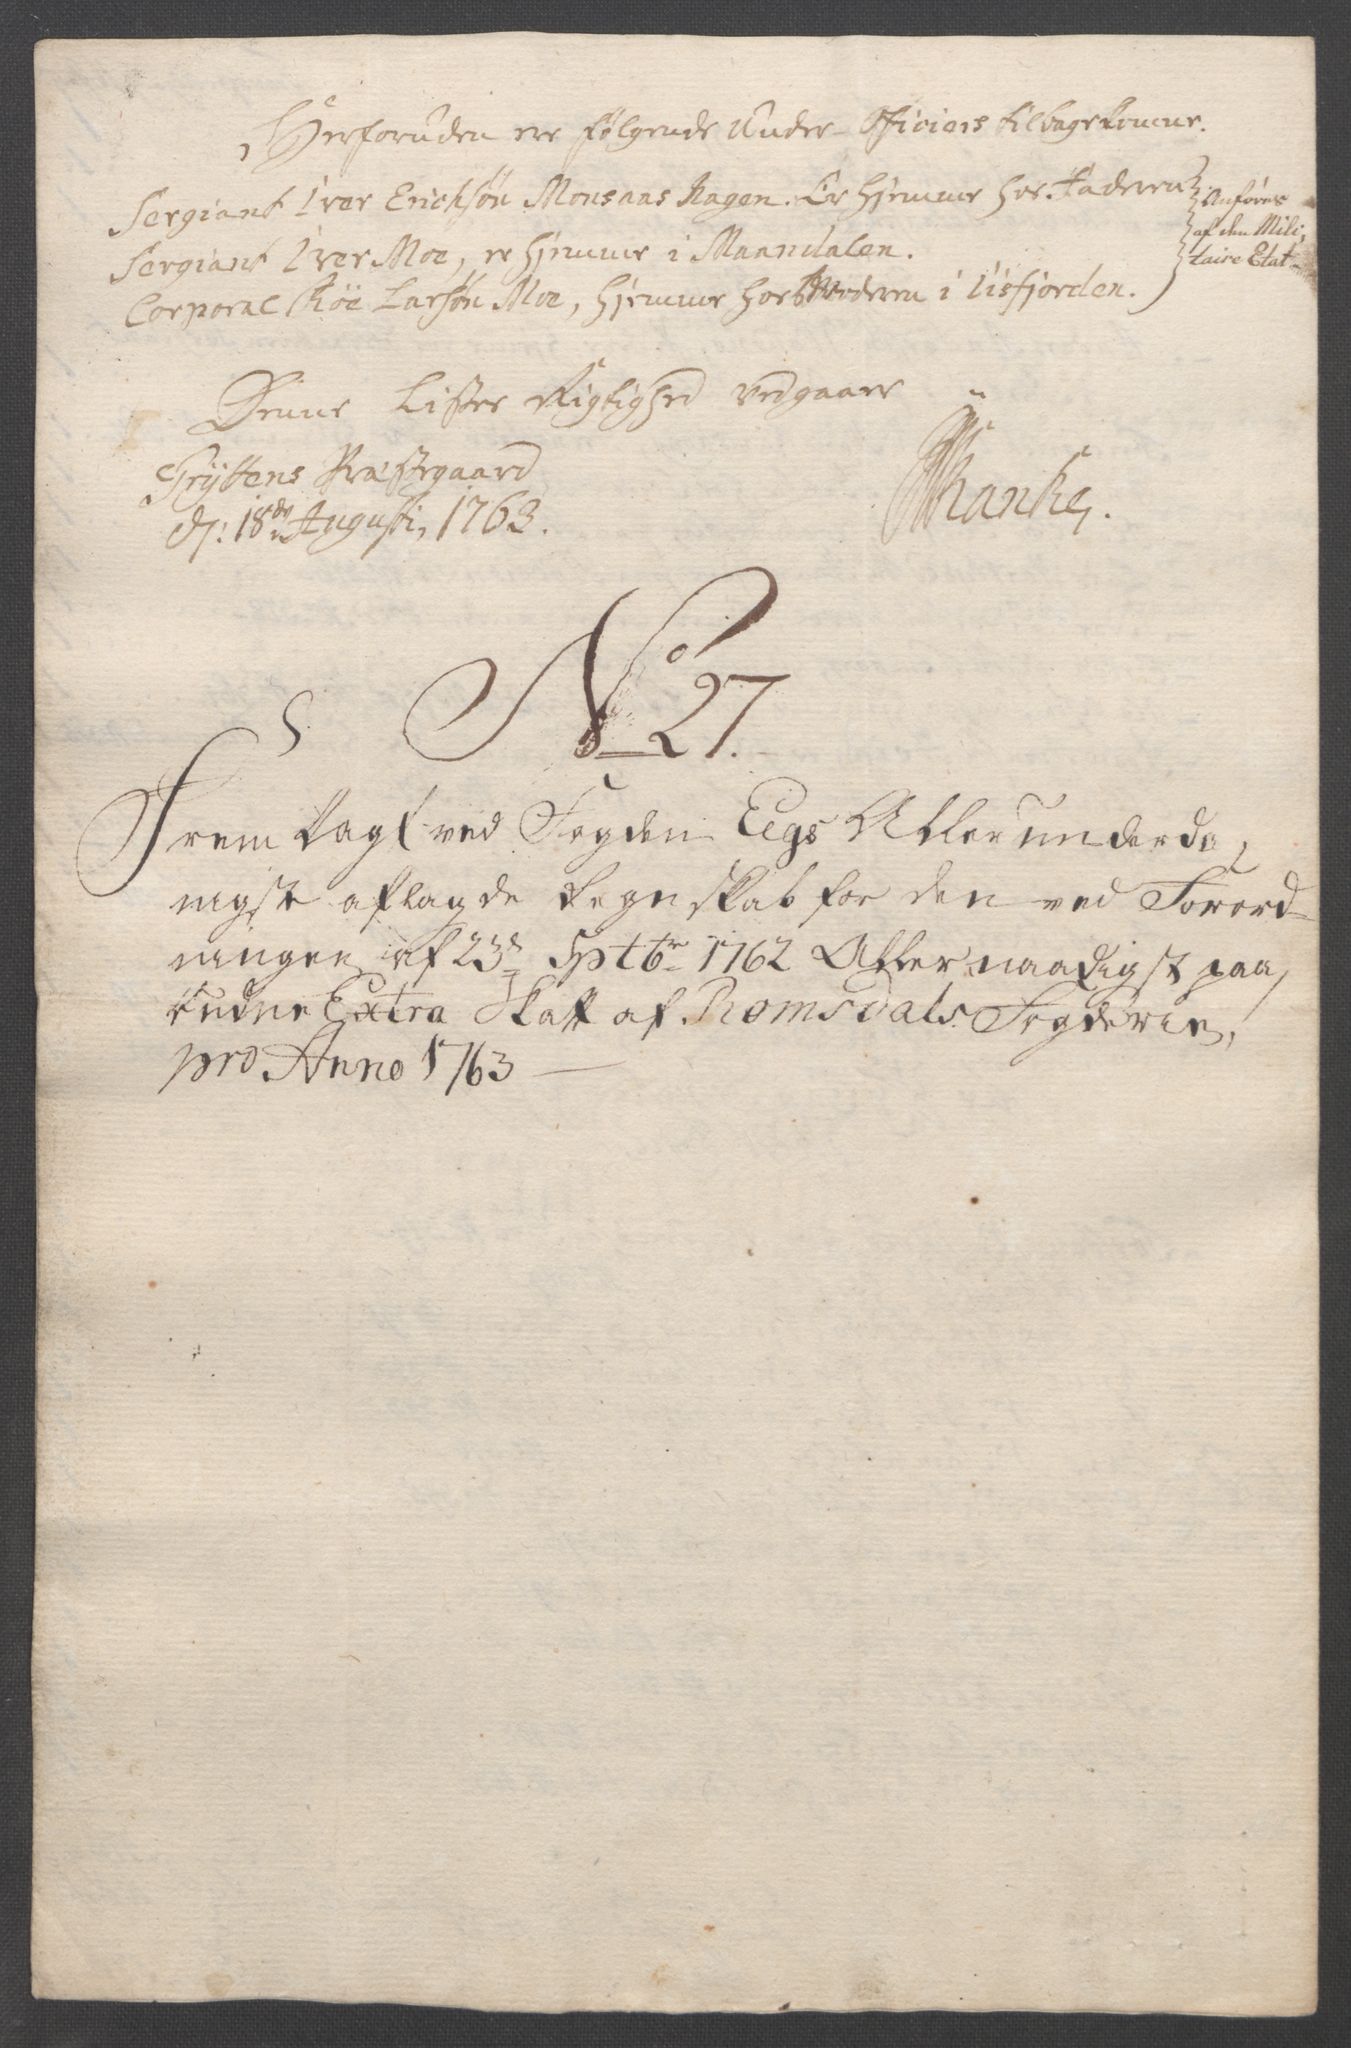 Herforuden ere følgende Under-Officiers tilbagekomne.
Sergiant Iver Erichsøn Monsaas Hagen. Er hjemme hos Faderen
Sergiant Iver Moe, er hjemme i Maandalen.
Corporal Røe Larsøn Moe, hjemme hos Moderen i Iisfjorden.
Anføres
af den Mili,
taire Etat
Denne Listes Rigtighed vedgaaer
Gryttens Præstegaard
d: 18de Augusti, 1763.
No 27.
Frem lagt ved Fogden Eegs Allerunderda,
nigst aflagde Regnskab for den ved Forord-
ningen af 23d Septbr 1762 Allernaadigst paa,
budne Extra Skatt af Romsdals Fogderie,
pro Anno 1763